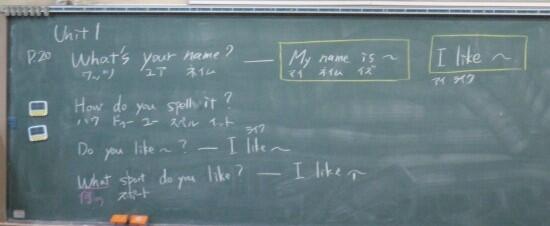 Unit 1
P.20 What's your name? — My name is ~ I like ~
ワッツ ユア ネイム マイ ネイム イズ マイ ライク
How do you spell it?
ハウ ドゥー ユー スペル イット
ライク
Do you like ~? — I like ~
What sport do you like? — I like ~
何の スポート